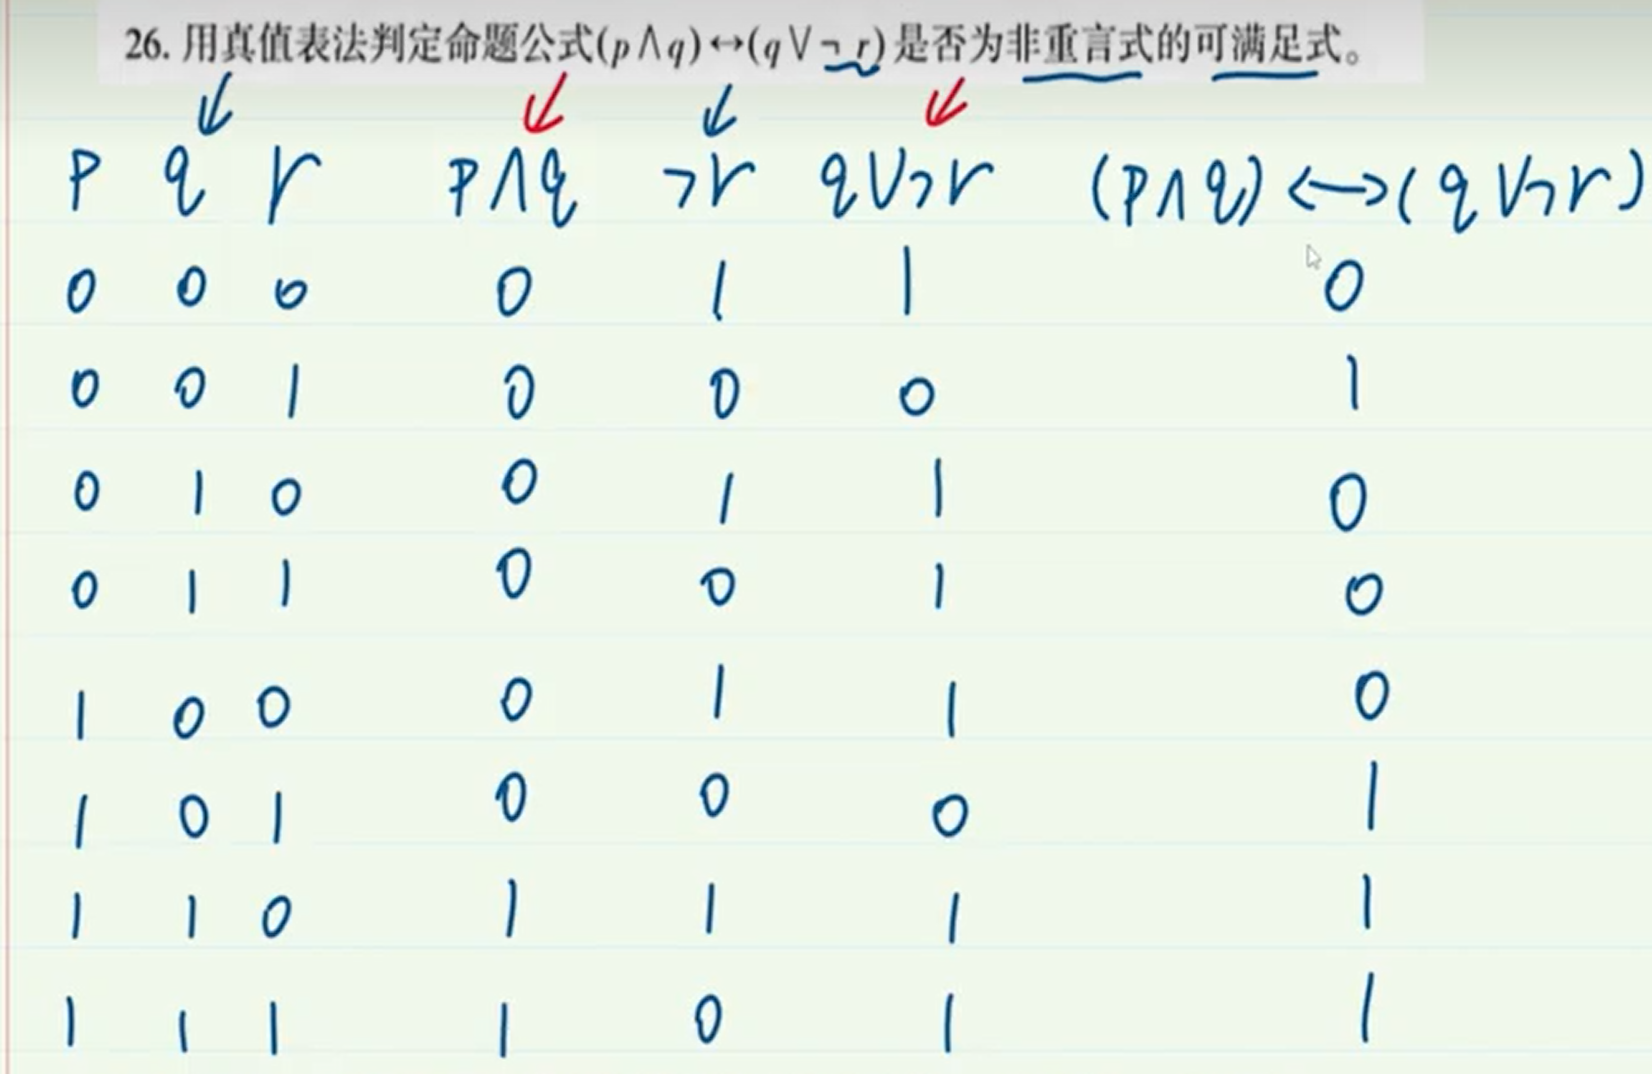 26. 用真值表法判定命题公式(p∧q)↔(q∨¬r)是否为非重言式的可满足式。
P q r p∧q ¬r q∨¬r (p∧q)↔(q∨¬r)
0 0 0 0 1 1 0
0 0 1 0 0 0 1
0 1 0 0 1 1 0
0 1 1 0 0 1 0
1 0 0 0 1 1 0
1 0 1 0 0 0 1
1 1 0 1 1 1 1
1 1 1 1 0 1 1